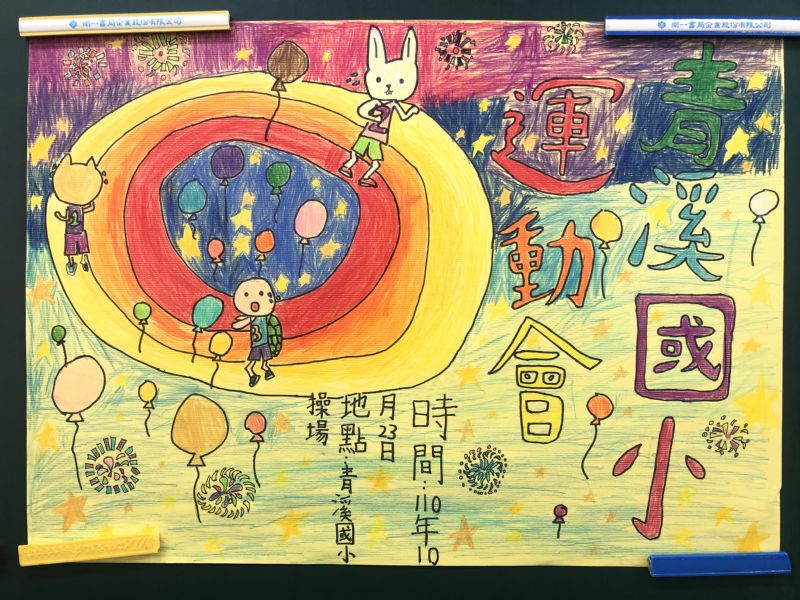 南一書局企業股份有限公司
南一書局企業股份有限公司
青溪國小
運動會
時間:110年10
月23日
地點:青溪國小
操場
1
2
3